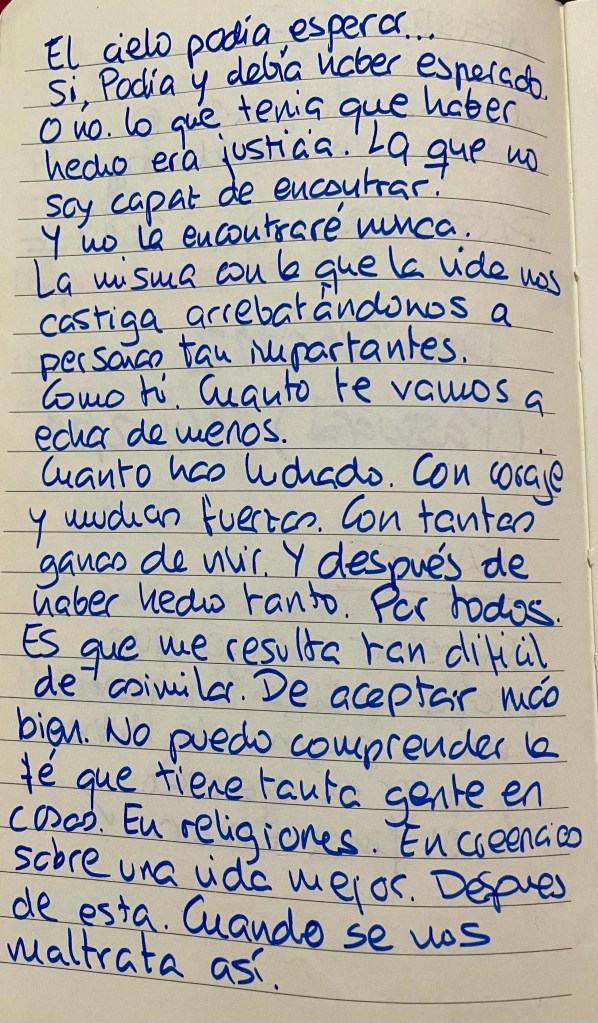 El cielo podía esperar...
Si, Podía y debía haber esperado.
O no. Lo que tenia que haber
hecho era justicia. La que no
soy capat de encontrar.
Y no la encontraré nunca.
La misma con la que la vida nos
castiga arrebatándonos a
personas tan importantes.
Como tú. Cuanto te vamos a
echar de menos.
Cuanto has luchado. Con coraje
y muchas fuerzas. Con tantas
ganas de vivir. Y después de
haber hecho tanto. Por todos.
Es que me resulta tan dificil
de asimilar. De aceptar más
bien. No puedo comprender la
fé que tiene tanta gente en
cosas. En religiones. En creencias
sobre una vida mejor. Despues
de esta. Cuando se nos
maltrata así.